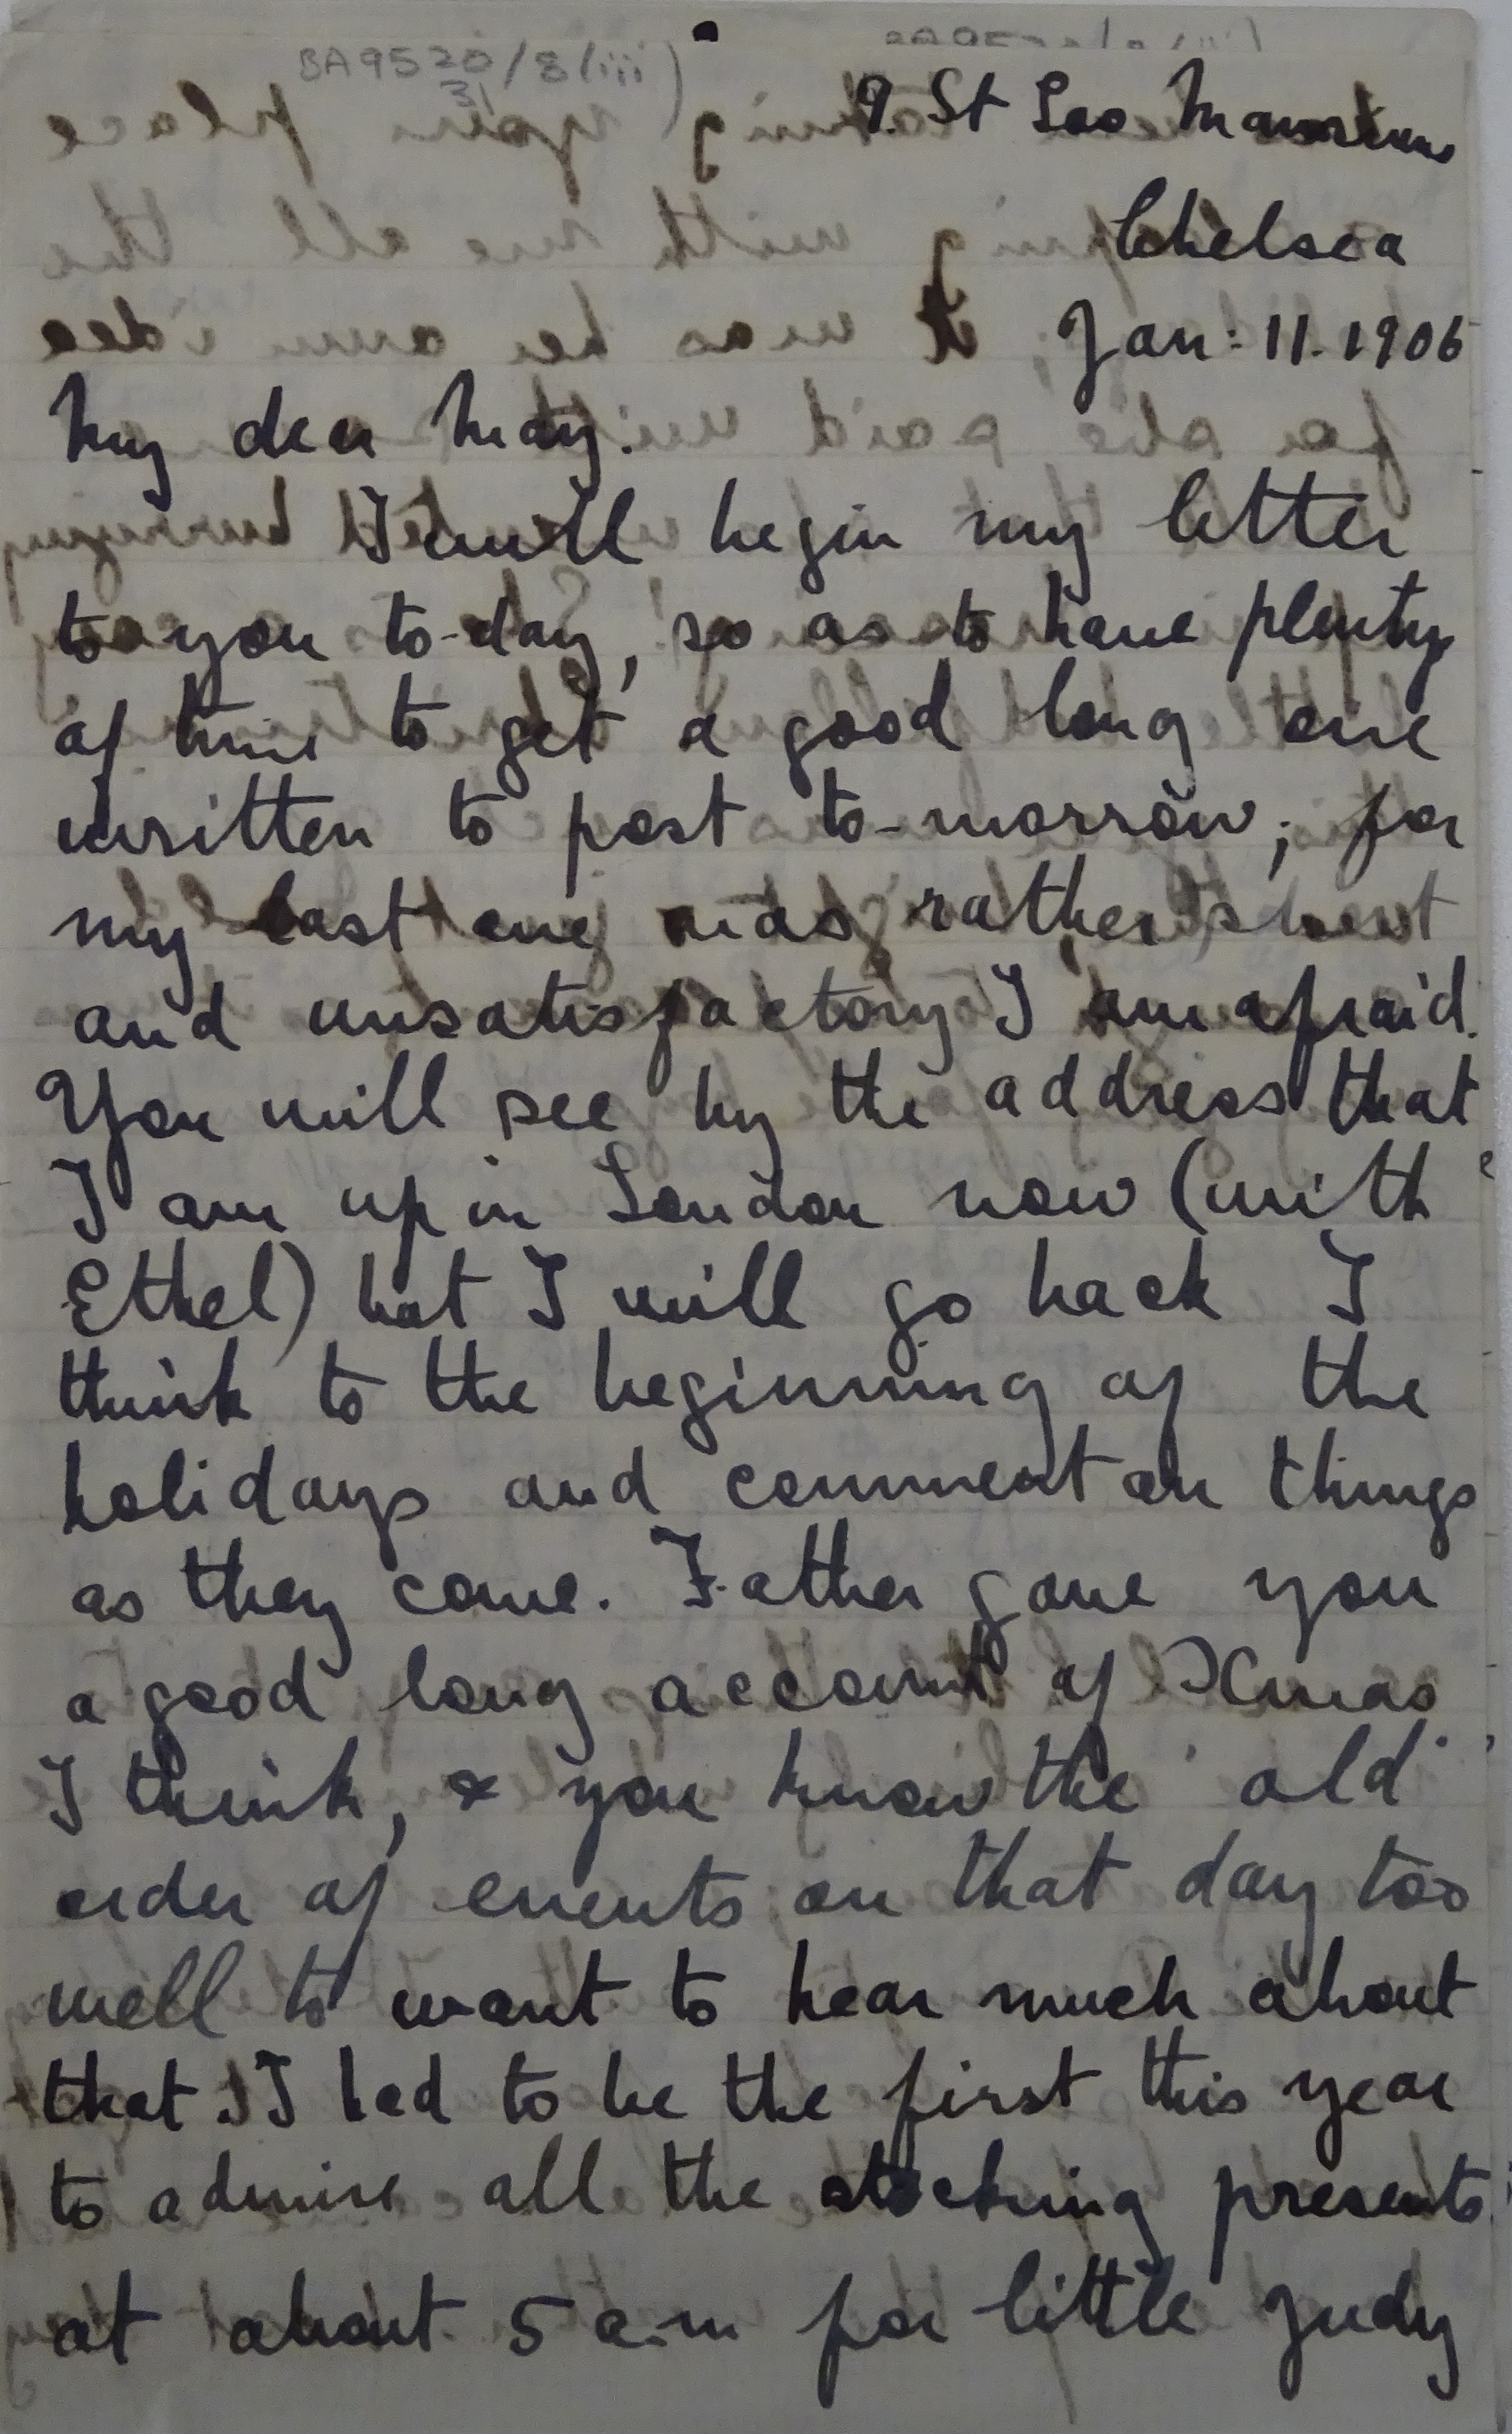 BA9520/8(iii)
31
9. St Leo Mansions
Chelsea
Jan: 11. 1906
My dear May.
I will begin my letter
to you to-day, so as to have plenty
of time to get a good long one
written to post to-morrow; for
my last one was rather short
and unsatisfactory I am afraid.
You will see by the address that
I am up in London now (with
Ethel) but I will go back I
think to the beginning of the
holidays and comment on things
as they come. Father gave you
a good long account of Xmas
I think, & you know the old
order of events on that day too
well to want to hear much about
that. I had to be the first this year
to admire all the stocking presents
at about 5 a.m for little Judy